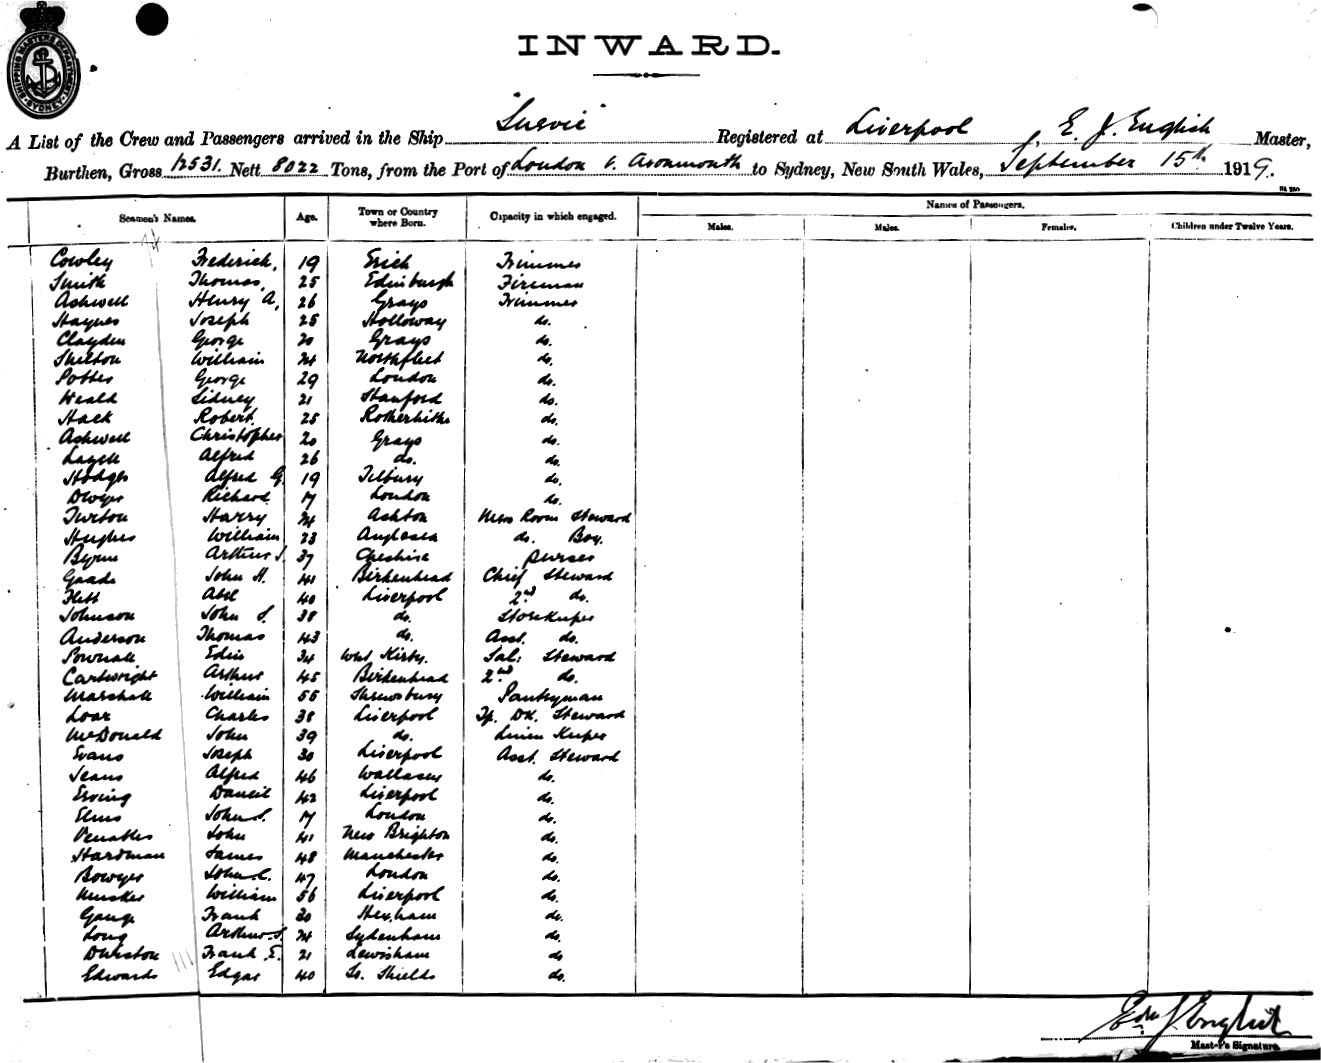 SHIPPING MASTER'S DEPARTMENT SYDNEY
INWARD.
A List of the Crew and Passengers arrived in the Ship "Suevic" Registered at Liverpool, E. J. English Master,
Burthen, Gross 12531. Nett 8022 Tons, from the Port of London & Avonmouth to Sydney, New South Wales, September 15th 1919.
Seamen's Names. Age. Town or Country where Born. Capacity in which engaged. Names of Passengers.
Males. Males. Females. Children under Twelve Years.
Cowley Frederick, 19 Erich Trimmer
Smith Thomas, 25 Edinburgh Fireman
Ashwell Henry A, 26 Grays Trimmer
Haynes Joseph 25 Holloway do.
Clayden George 20 Grays do.
Skelton William 24 Northfleet do.
Potter George 29 London do.
Weald Sidney 21 Stanford do.
Hack Robert 25 Rotherhithe do.
Ashwell Christopher 20 Grays do.
Lazell Alfred 26 do. do.
Hodges Alfred G. 19 Tilbury do.
Dwyer Richard 17 London do.
Turton Harry 24 Ashton Mess Room Steward
Hughes William 23 Anglesea do. Boy.
Byrne Arthur J. 37 Cheshire Purser
John H. 41 Birkenhead Chief Steward
Flett Abel 40 Liverpool 2nd do.
Johnson John S. 38 do. Storekeeper
Anderson Thomas 43 do. Asst. do.
Pownall Edis 34 West Kirby. Sal: Steward
Cartwright Arthur 45 Birkenhead 2nd do.
Marshall William 55 Shrewsbury Pantryman
Loar Charles 38 Liverpool Tp. Dk. Steward
McDonald John 39 do. Linen Keeper
Evans Joseph 30 Liverpool Asst. Steward
Jeans Alfred 46 Wallasey do.
Erving Daneil 42 Liverpool do.
Elms John S. 17 London do.
Venables John 41 New Brighton do.
Hardman James 48 Manchester do.
Bowyer John C. 47 London do.
Musker William 56 Liverpool do.
Gange Frank 30 Hexham do.
Long Arthur S. 24 Sydenham do.
Durston Frank E. 21 Lewisham do
Edwards Edgar 40 So. Shields do.
Edw J. English
Master's Signature.